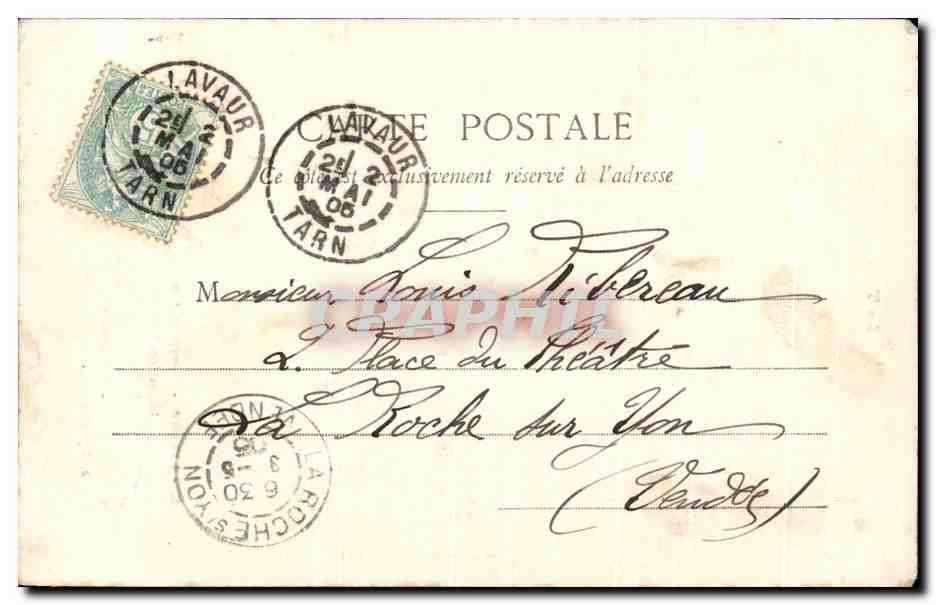 LAVAUR
2E 2
MAI
05
TARN
LAVAUR
2E 2
MAI
05
TARN
CARTE POSTALE
Ce côté est exclusivement réservé à l'adresse
Monsieur Louis Ribereau
2. Place du Théâtre
La Roche sur Yon
(Vendée)
CPAPHIL
LA ROCHE S YON
6 30
3 -5
05
VENDÉE